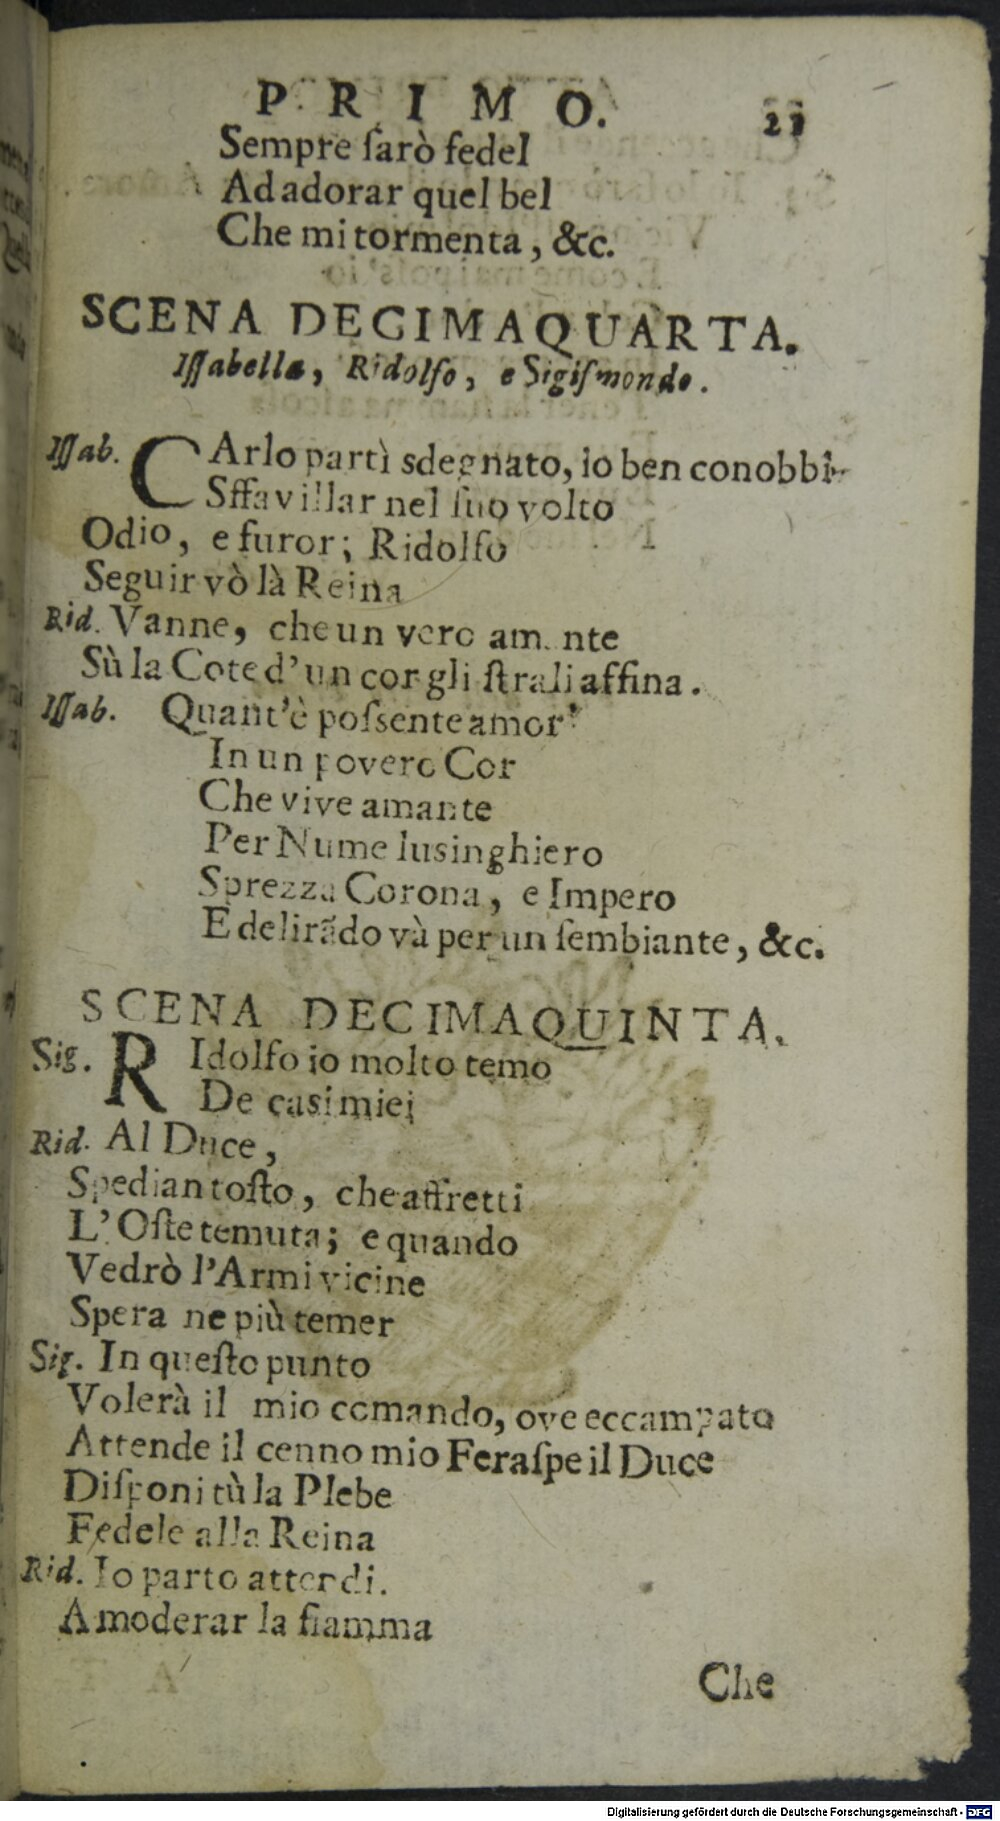 PRIMO. 21
Sempre ſarò fedel
Ad adorar quel bel
Che mi tormenta, &c.
SCENA DECIMAQUARTA.
Iſſabella, Ridolfo, e Sigiſmondo.
Iſſab. CArlo partì sdegnato, io ben conobbi
Sffavillar nel ſuo volto
Odio, e furor; Ridolfo
Seguir vò là Reina
Rid. Vanne, che un vero am nte
Sù la Cote d'un cor gli ſtrali affina.
Iſſab. Quant'è poſsente amor
In un povero Cor
Che vive amante
Per Nume lusinghiero
Sprezza Corona, e Impero
E delirãdo và per un ſembiante, &c.
SCENA DECIMAQUINTA.
Sig. RIdolfo io molto temo
De casi miei
Rid. Al Duce,
Spedian toſto, che affretti
L'Oſte temuta; e quando
Vedrò l'Armi vicine
Spera ne più temer
Sig. In queſto punto
Volerà il mio comando, ove eccampato
Attende il cenno mio Feraſpe il Duce
Diſponi tù la Plebe
Fedele alla Reina
Rid. Io parto attendi.
A moderar la fiamma
Che
Digitalisierung gefördert durch die Deutsche Forschungsgemeinschaft - DFG